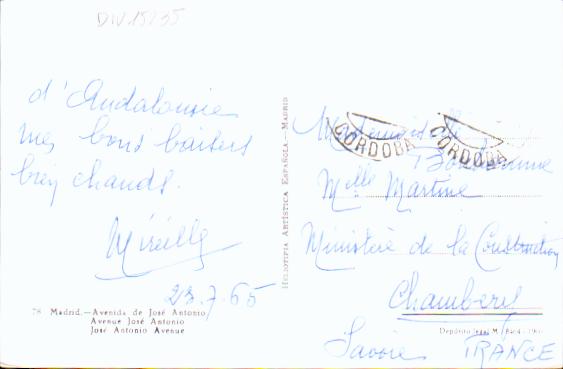 DIV.15235
d'Andalousie
mes bons baisers
bien chauds.
Mireille
23.7.65
78 Madrid.—Avenida de José Antonio
Avenue José Antonio
José Antonio Avenue
HELIOTIPIA ARTÍSTICA ESPAÑOLA.—MADRID
CORDOBA
CORDOBA
Mademoiselle
Melle Martine
Ministère de la Construction
Chambery
Depósito legal M.
Savoie FRANCE